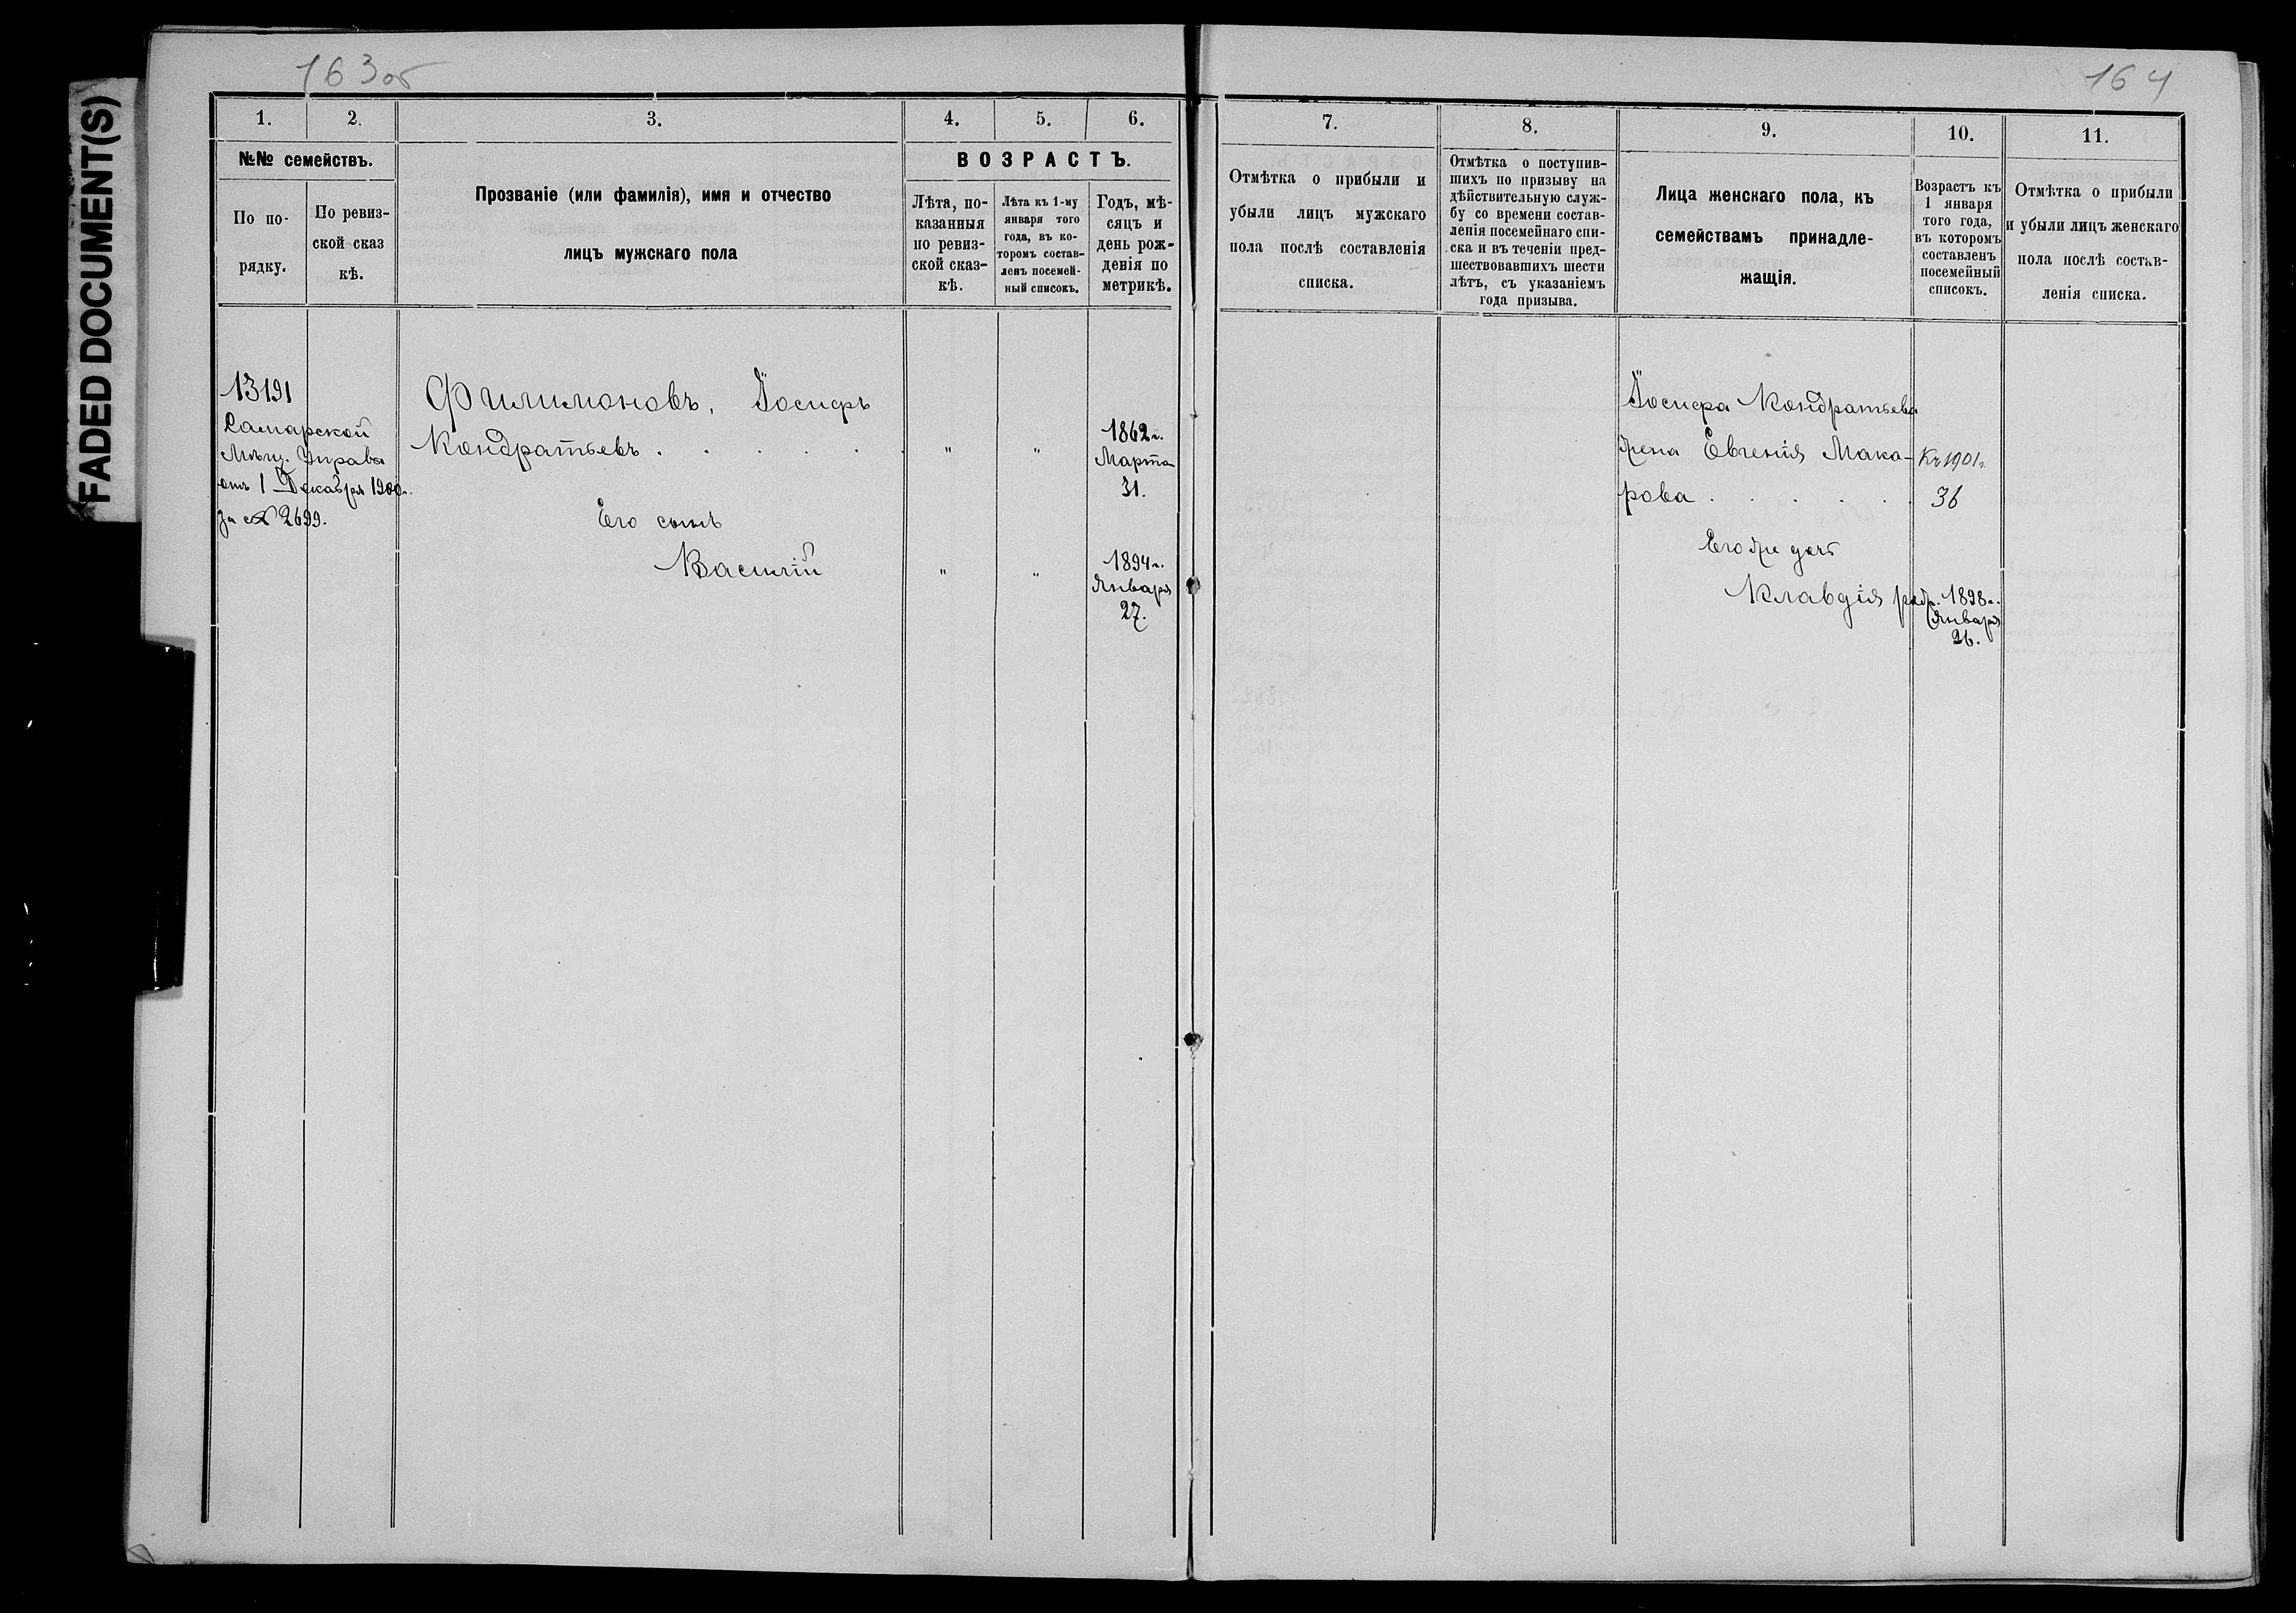 FADED DOCUMENT(S)
163об
164
1.
2.
3.
4.
5.
6.
№№ семействъ.
По по-
рядку.
По ревиз-
ской сказ
кѣ.
Прозваніе (или фамилія), имя и отчество
лицъ мужскаго пола
ВОЗРАСТЪ.
Лѣта, по-
казанныя
по ревиз-
ской сказ-
кѣ.
Лѣта къ 1-му
января того
года, въ ко-
торомъ состав-
ленъ посемей-
ный списокъ.
Годъ, мѣ-
сяцъ и
день рож-
денія по
метрикѣ.
13191
Самарской
Мѣщ. Управы
отъ 1 Декабря 1900г.
за № 2699.
Филимоновъ, Іосифъ
Кондратьевъ . . . . . .
" "
1862г.
Марта
31.
Его сынъ
Василій
" "
1894г.
Января
27.
7.
8.
9.
10.
11.
Отмѣтка о прибыли и
убыли лицъ мужскаго
пола послѣ составленія
списка.
Отмѣтка о поступив-
шихъ по призыву на
дѣйствительную служ-
бу со времени состав-
ленія посемейнаго спи-
ска и въ теченіи пред-
шествовавшихъ шести
лѣтъ, съ указаніемъ
года призыва.
Лица женскаго пола, къ
семействамъ принадле-
жащія.
Возрастъ къ
1 января
того года,
въ которомъ
составленъ
посемейный
списокъ.
Отмѣтка о прибыли
и убыли лицъ женскаго
пола послѣ состав-
ленія списка.
Іосифа Кондратьева
жена Евгенія Мака-
рова . . . . .
Къ 1901г.
36
Его же дочь
Клавдія родж. 1898г.
Января
26.